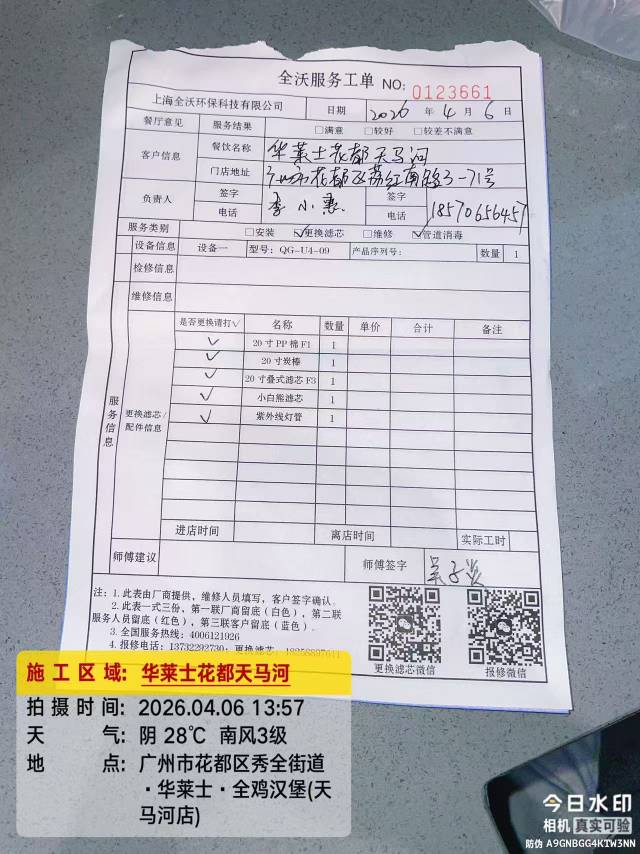 全沃服务工单 NO: 0123661
上海全沃环保科技有限公司 日期 2026 年 4 月 6 日
餐厅意见 服务结果 □满意 □较好 □较差不满意
客户信息 餐饮名称 华莱士花都天马河
门店地址 广州市花都区荔红南路3-71号
负责人 签字 李小惠 签字
电话 电话 18570656457
服务类别 □安装 ☑更换滤芯 □维修 ☑管道消毒
设备信息 设备一 型号: QG-U4-09 产品序列号: 数量 1
检修信息
维修信息
服务信息
更换滤芯/配件信息
是否更换请打√ 名称 数量 单价 合计 备注
√ 20寸PP棉F1 1
√ 20寸炭棒 1
√ 20寸叠式滤芯F3 1
√ 小白熊滤芯 1
√ 紫外线灯管 1
进店时间 离店时间 实际工时
师傅建议 师傅签字
注: 1.此表由厂商提供，维修人员填写，客户签字确认。
2.此表一式三份，第一联厂商留底(白色)，第二联
服务人员留底(红色)，第三联客户留底(蓝色)。
3.全国服务热线: 4006121926
4.报修电话: 13732292730; 更换滤芯
更换滤芯微信 报修微信
施工区域: 华莱士花都天马河
拍摄时间: 2026.04.06 13:57
天 气: 阴 28℃ 南风3级
地 点: 广州市花都区秀全街道
·华莱士·全鸡汉堡(天
马河店)
今日水印
相机 真实可验
防伪 A9GNBGG4KTW3NN